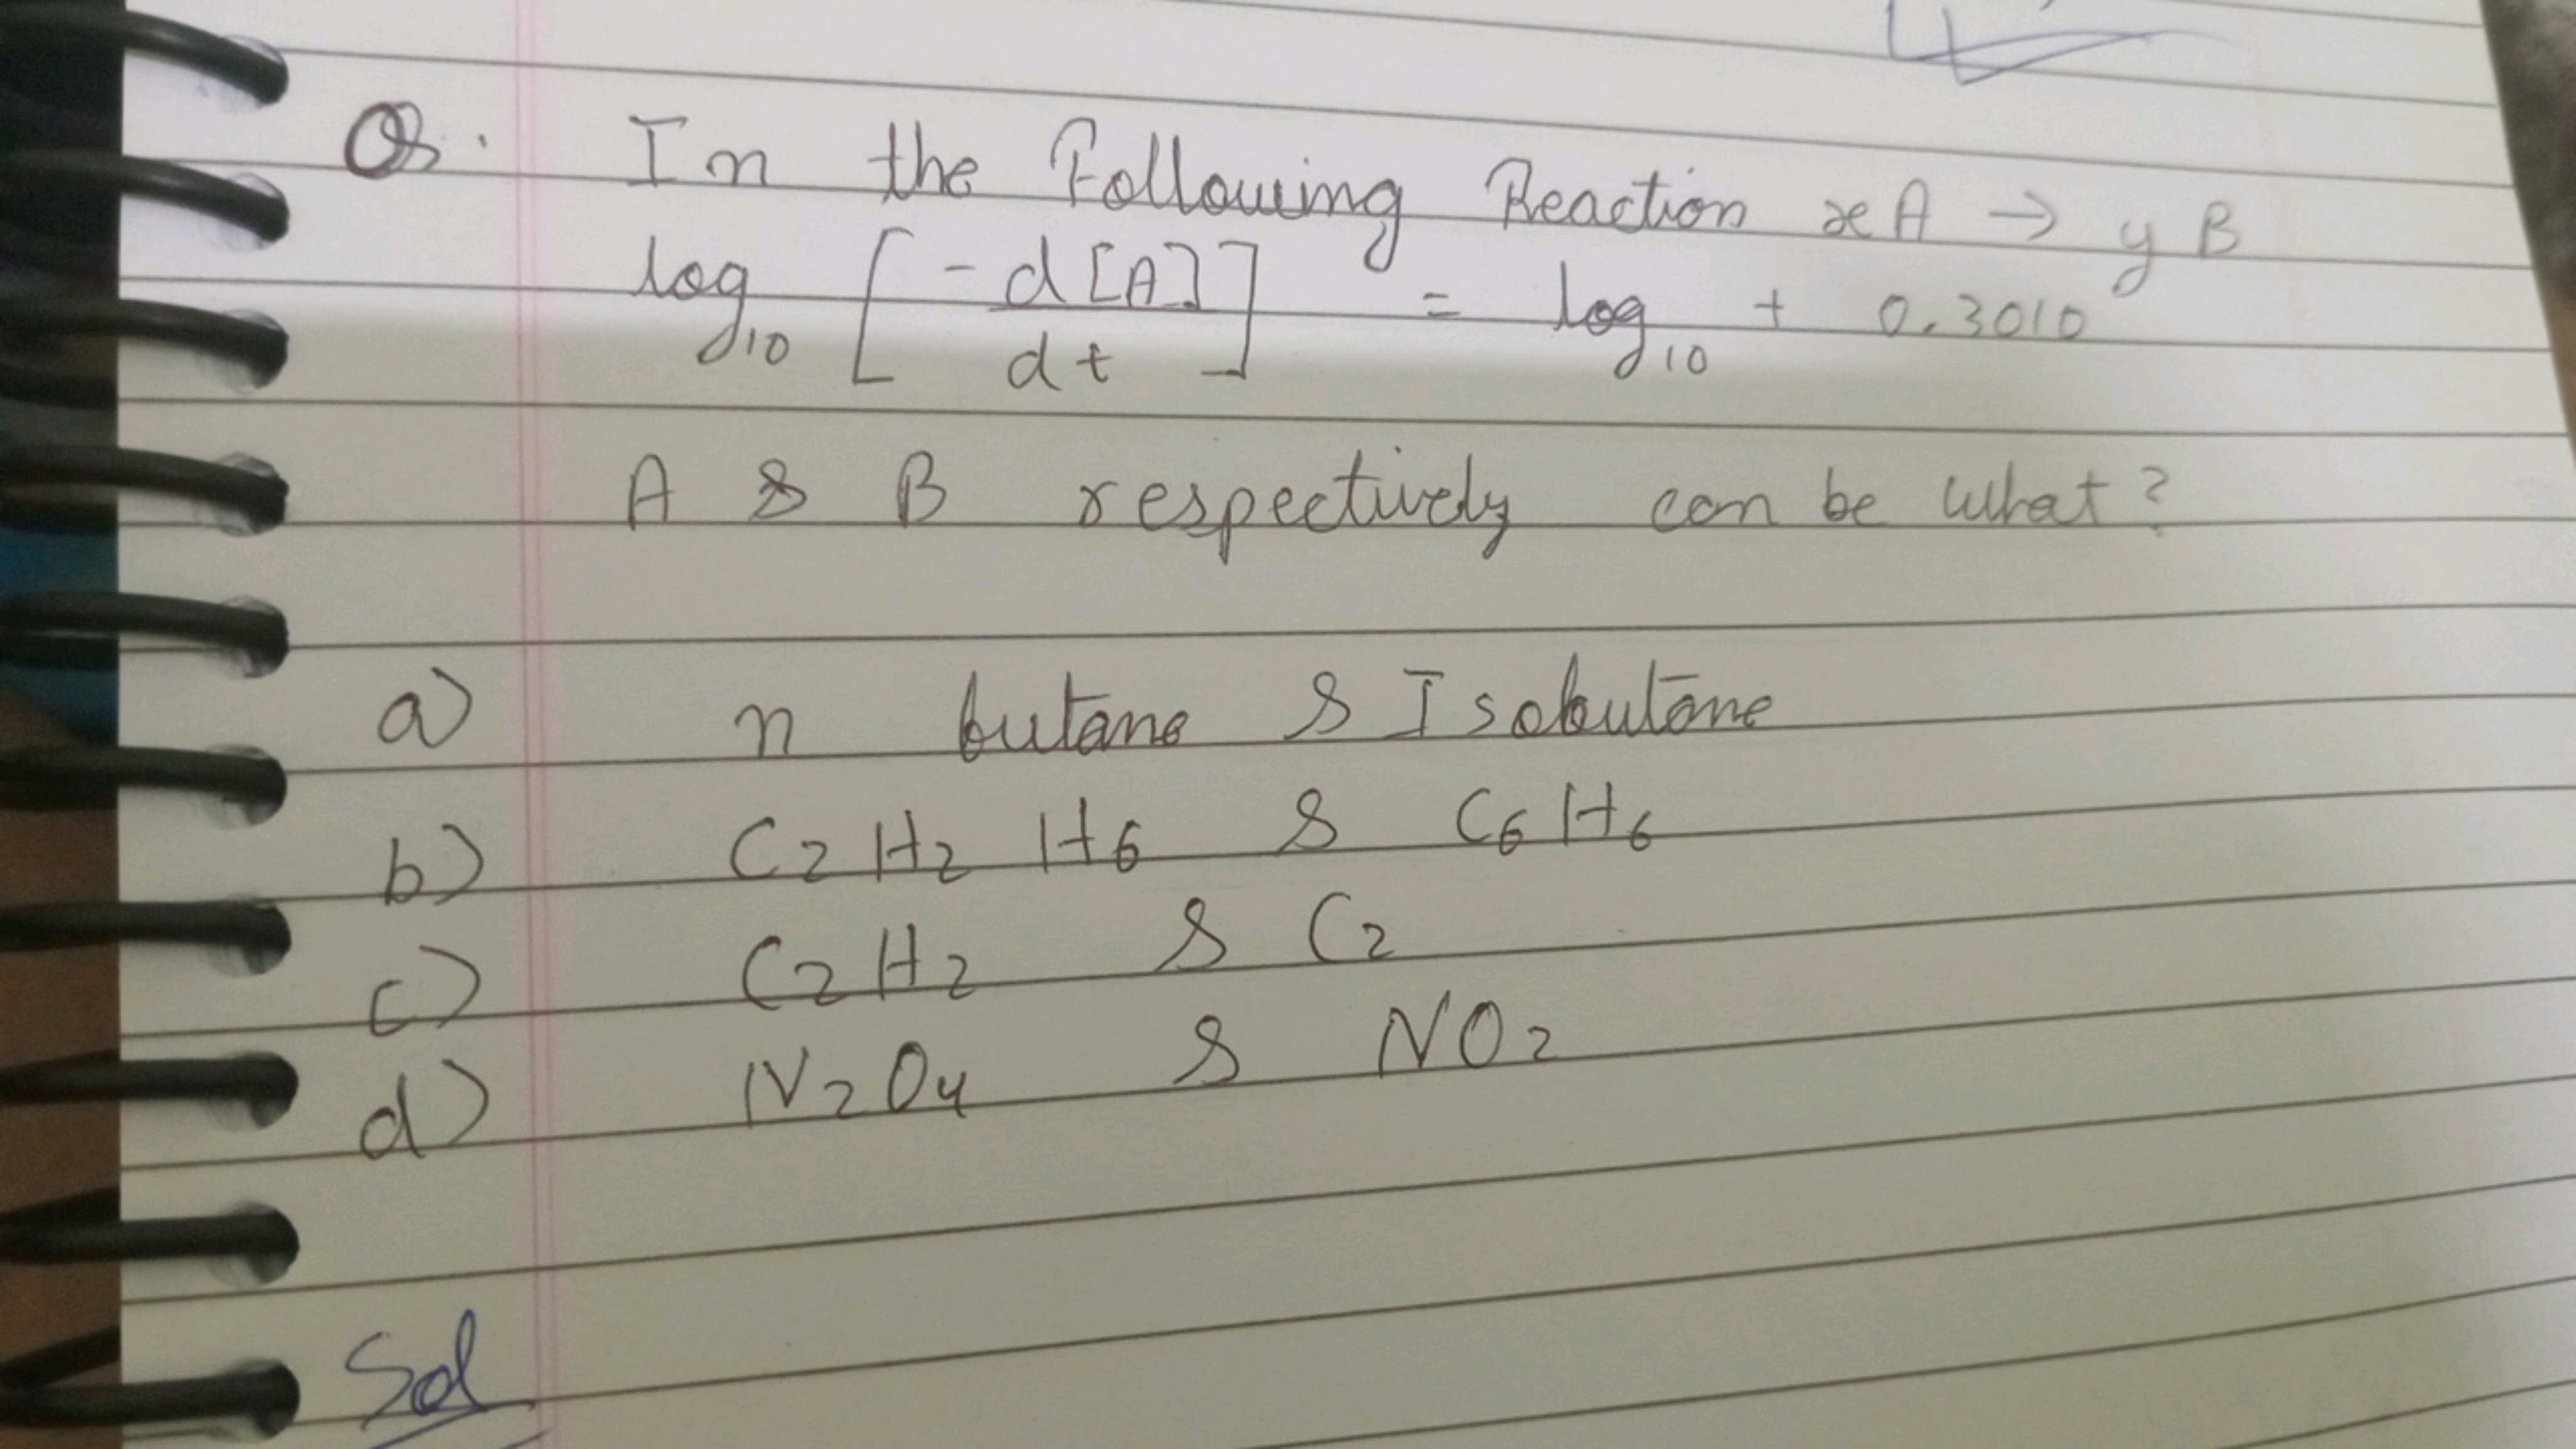 Qs. In the Following Reaction xA → yB
log₁₀ [ -d[A] / dt ] = log₁₀ + 0.3010
A & B respectively can be what?
a) n butane & Isobutane
b) C₂H₂ H₆ & C₆H₆
c) C₂H₂ & C₂
d) N₂O₄ & NO₂
Sol